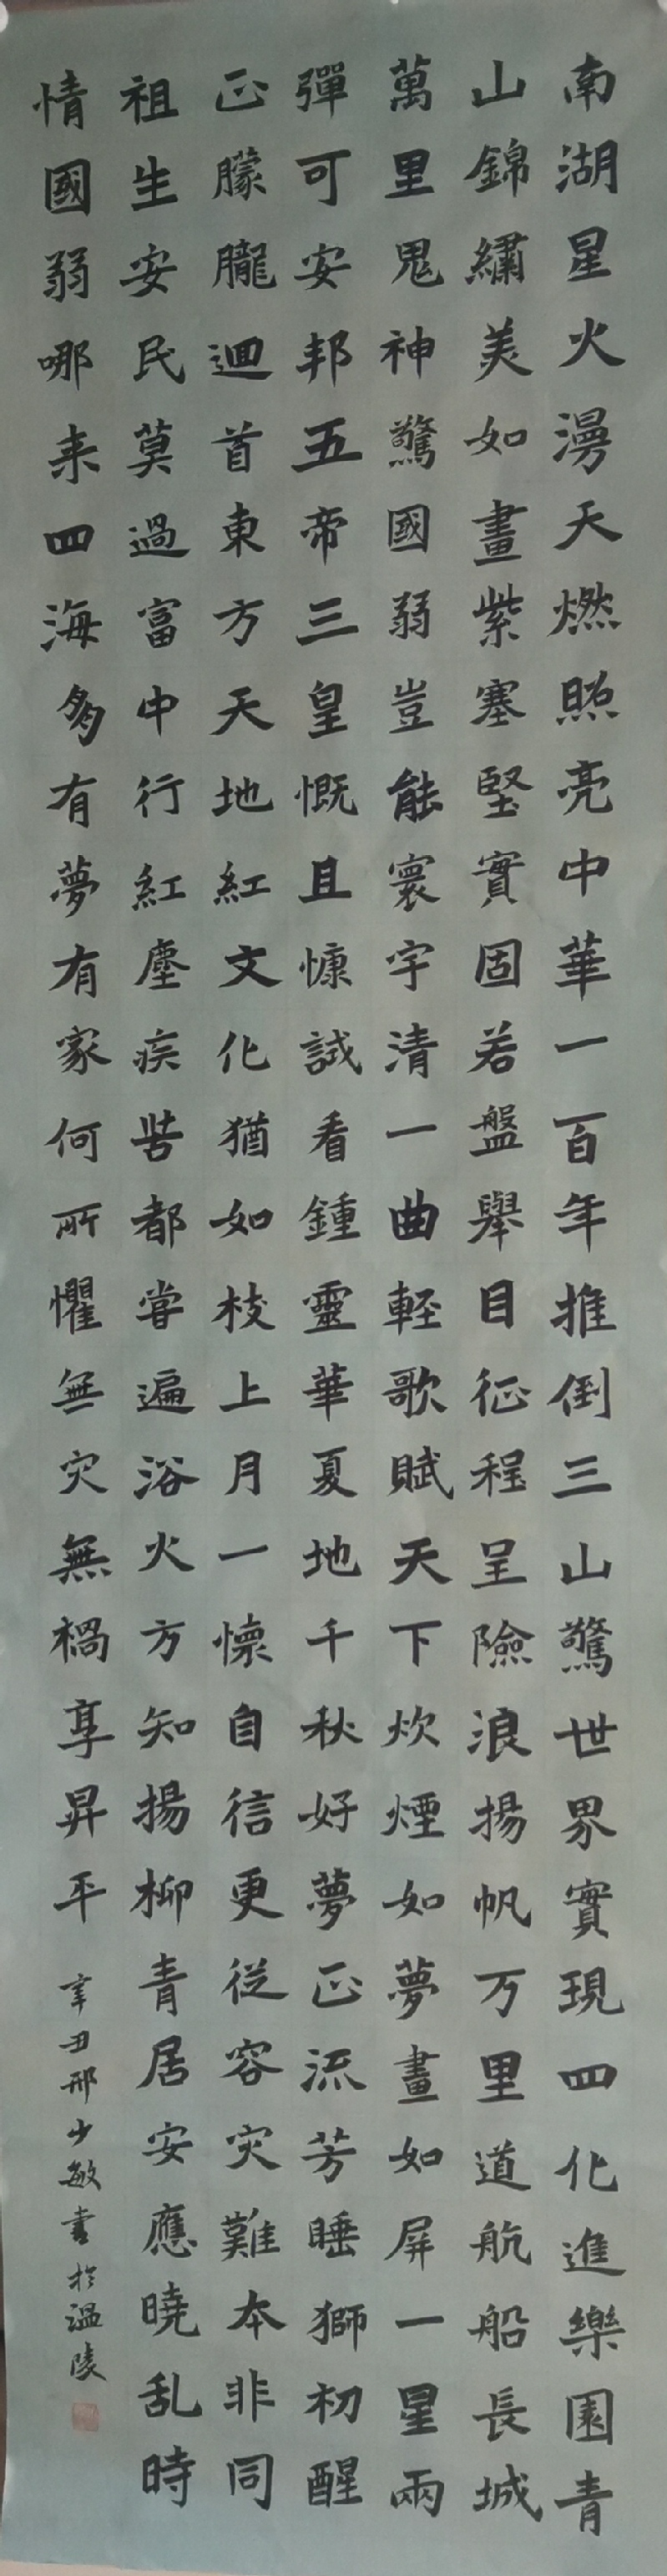 南湖星火漫天燃照亮中華一百年推倒三山驚世界實現四化進樂園青
山錦繡美如畫紫塞堅實固若盤舉目征程呈險浪揚帆万里道航船長城
萬里鬼神驚國弱豈能寰宇清一曲輕歌賦天下炊煙如夢畫如屏一星兩
彈可安邦五帝三皇慨且慷試看鍾靈華夏地千秋好夢正流芳睡獅初醒
正朦朧迴首東方天地紅文化猶如枝上月一懷自信更從容灾難本非同
祖生安民莫過富中行紅塵疾苦都嘗遍浴火方知揚柳青居安應曉乱時
情國弱哪来四海夠有夢有家何所懼無灾無禍享昇平
辛丑邢少敏書於溫陵